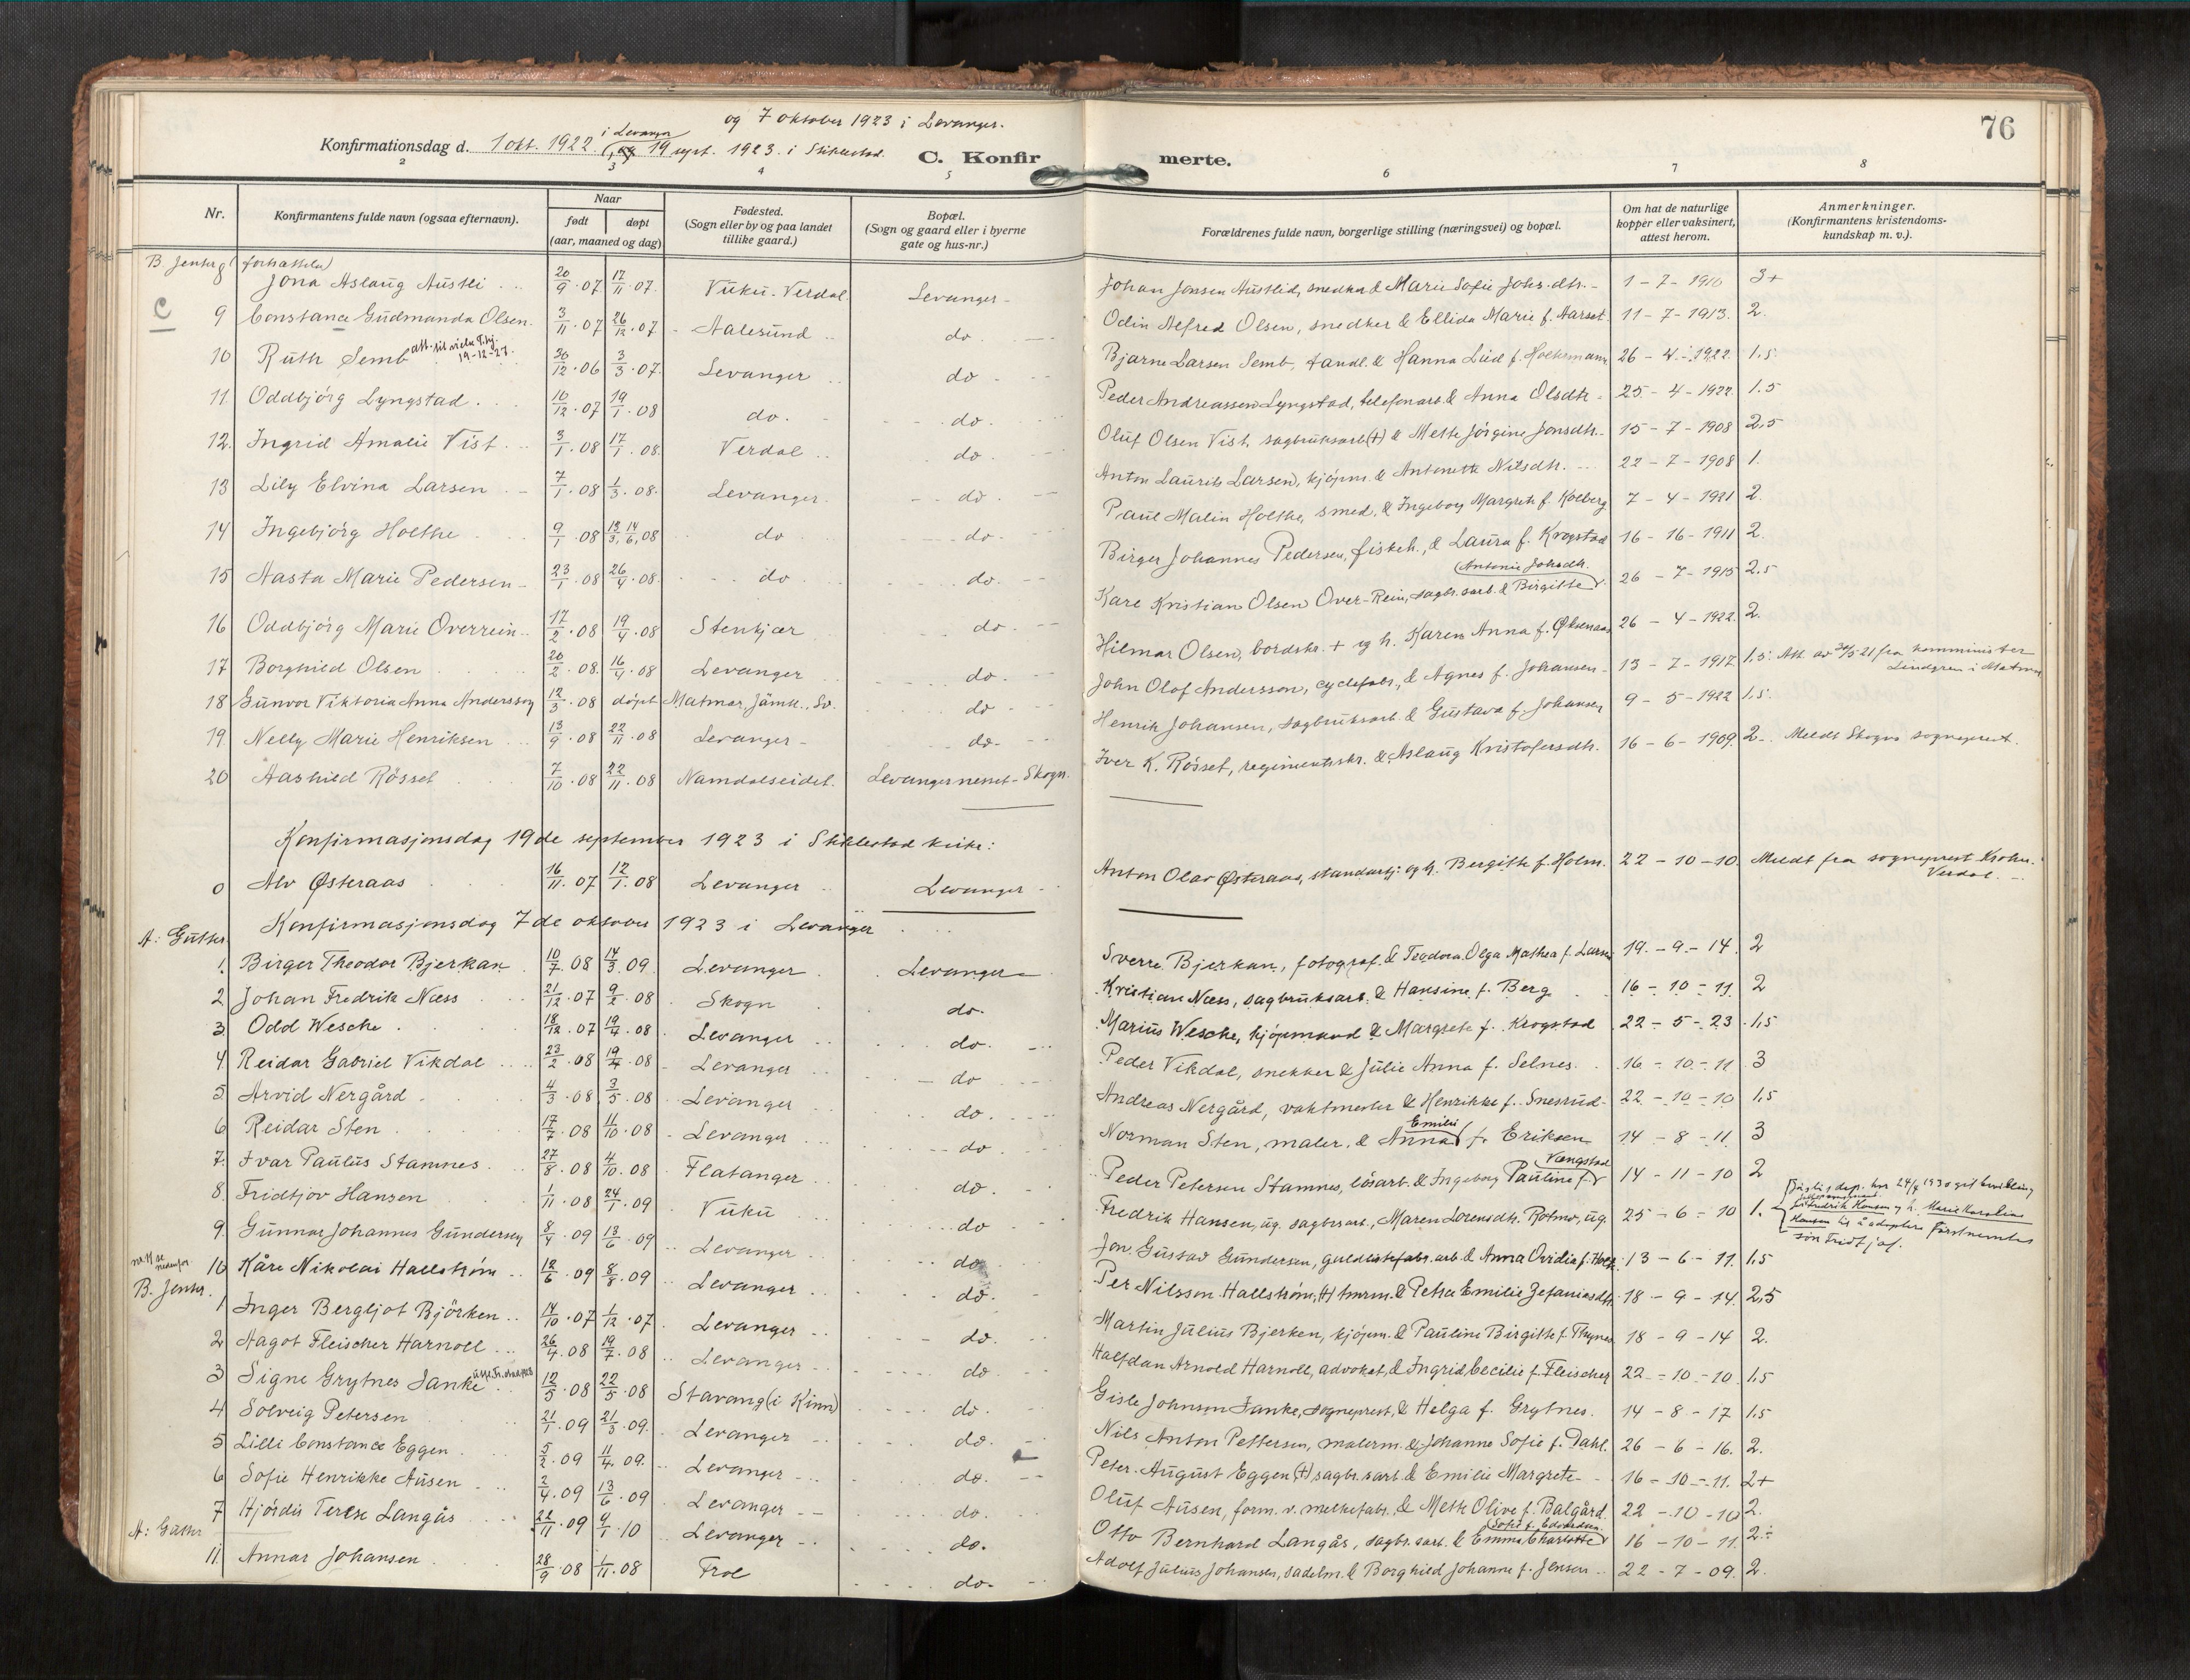 og 7 oktober 1923 i Levanger.
Konfirmationsdag d. 1 okt. 1922 i Levanger, og 19 sept. 1923. i Stiklestad.
C. Konfirmerte.
76
2 3 4 5 6 7 8
Nr.
Konfirmantens fulde navn (ogsaa efternavn).
Naar
født døpt
(aar, maaned og dag)
Fødested.
(Sogn eller by og paa landet
tillike gaard.)
Bopæl.
(Sogn og gaard eller i byerne
gate og hus-nr.)
Forældrenes fulde navn, borgerlige stilling (næringsvei) og bopæl.
Om hat de naturlige
kopper eller vaksinert,
attest herom.
Anmerkninger.
(Konfirmantens kristendoms-
kundskap m. v.).
B. Jenter (fortsættelse)
8 Jona Aslaug Austli 20/9 07 17/11 07. Vuku. Verdal Levanger Johan Jonsen Austlid, snedker & Marie Sofie Johs.dtr. 1-7-1910 3+
C
9 Constance Gudmunda Olsen. 3/11 07 26/12 07 Aalesund do Odin Alfred Olsen, snedker & Ellida Marie f. Aarset. 11-7-1913. 2.
10 Ruth Semb 30/12 06 3/3 07. Levanger do Bjarne Larsen Semb, tandl. & Hanna f. 26-4-1922. 1,5
19-12-27.
11. Oddbjörg Lyngstad. 10/12 07 19/1 08 do. do. Peder Andreassen Lyngstad, telefonarb. & Anna Olsdtr 25-4-1922. 1.5
12. Ingrid Amalie Vist 3/1 08 17/1 08. Verdal do. Oluf Olsen Vist, sagbruksarb (+) & Mette Jörgine Jonsdtr. 15-7-1908 2,5
13 Lily Elvina Larsen 7/1 08 1/3 08. Levanger. do. Anton Laurits Larsen, kjöpm. & Antonette Nilsdtr. 22-7-1908 1.
14 Ingebjörg Holthe 9/1 08 13/3, 14/6, 08 do do. Paul Malin Holthe, smed, & Ingeborg Margrete f. Kolberg 7-4-1921 2.
15 Aasta Marie Pedersen 23/1 08 26/4 08. do do. Birger Johannes Pedersen, fiskeh., & Laura f. Krogstad 16-16-1911 2.
16 Oddbjörg Marie Overrein 17/2 08 19/4 08 Stenkjær do. Kare Kristian Olsen Over-Rein, sagbr.arb. & Birgitte (Antonie Johsdtr. 26-7-1915 2.5
17 Borghild Olsen 20/2 08. 16/4 08 Levanger do. Hilmar Olsen, bordskr. + og h. Karen Anna f. Øksenaas 26-4-1922. 2.
18 Gunvor Viktoria Anna Andersson 12/3 08 döpt Matmar, Jämtl., Sv. do John Olof Andersson, cyclefabr., & Agnes f. Johansen 13-7-1917 1,5. Att. av 30/5-21 fra komminister Lindgren i Matmar
19 Nelly Marie Henriksen 13/9 08 22/11 08 Levanger do. Henrik Johansen, sagbruksarb. & Gustava f. Johansen 9-5-1922 1,5.
20 Aashild Rösset 7/10 08 22/11 08 Namdalseidet. Levangernesset-Skogn. Iver K. Rösset, regimentsskr. & Aslaug Kristofersdtr. 16-6-1909. 2. Meldt Skogns sogneprest.
Konfirmasjonsdag 19de september 1923 i Stiklestad kirke:
0 Alv Østeraas 16/11. 07 12/1. 08 Levanger Levanger Anton Olav Østeraas, standartj: og h. Bergitte f. Holm. 22-10-10. Meldt fra sogneprest Krohn. Verdal.
Konfirmasjonsdag 7de oktober 1923 i Levanger
A: Gutter.
1. Birger Theodor Bjerkan 10/7 08 14/3 09 Levanger Levanger Sverre Bjerkan, fotograf. & Teodora Olga Mathea f. Larsen 19.-9.-14. 2
2 Johan Fredrik Næss 21/12 07 9/2 08 Skogn do. Kristian Næss, sagbruksarb. & Hansine f. Berg 16-10-11. 2
3 Odd Wesche 18/12 07 19/4 08 Levanger do. Marius Wesche, kjöpmand & Margrete f. Krogstad 22-5-23. 1,5
4. Reidar Gabriel Vikdal 23/2 08 19/4 08 Levanger do Peder Vikdal, snekker & Julie Anna f. Selnes. 16-10-11 3
5. Arvid Nergård 4/3 08 3/5 08 Levanger do. Andreas Nergård, vaktmester & Henrikke f. Snesrud 22-10-10 1,5
6 Reidar Sten 17/7 08 11/10 08 Levanger do. Norman Sten, maler, & Anna Emilie f. Eriksen 14-8-11 3
7. Ivar Paulus Stamnes. 27/8 08 4/10. 08 Flatanger do. Peder Petersen Stamnes, lösarb. & Ingeborg Pauline f. Vangstad 14-11-10 2
8. Fridtjov Hansen 1/11 08 24/1 09 Vuku do Fredrik Hansen, ug. sagbrsarb., Maren Lorensdtr. Rotmo, ug. 25-6-10 1. Justisdep. har 24/4 1930 git bevilling
Fredrik Hansen og h. Marie Karoline
Hansen til å adoptere førstnevntes
søn Fridtjof.
9. Gunnar Johannes Gundersen 8/4 09 13/6 09 Levanger do. Jon Gustav Gundersen, guldlistefabr. arb. & Anna Ovidia f. Holte 13-6-11. 1,5
nr. 11 se nedenfor.
10 Kåre Nikolai Hallström 12/6 09 8/8 09 Levanger do. Per Nilsson Hallström, (+) & Petra Emilie Zefaniasdtr. 18-9-14. 2,5
B. Jenter.
1 Inger Bergljot Björken 14/10 07 1/12 07 Levanger do. Martin Julius Bjerken, kjöpm. & Pauline Birgitte f. Thynes 18-9-14 2.
2 Aagot Fleischer Harnoll 26/4 08 19/7 08 Levanger do. Halfdan Arnold Harnoll, advokat, & Ingrid Cecilie f. Fleischer 22-10-10 1,5
3 Signe Grytnes Janke 12/5 08 22/5 08 Stavang (i Kinn) do. Gisle Johnson Janke, sogneprest, & Helga f. Grytnes. 14-8-17 1,5
4 Solveig Petersen 21/1 09 21/3 09. Levanger do. Nils Anton Pettersen, malerm. & Johanne Sofie f. Dahl. 26-6-16. 2.
5 Lilli Constance Eggen 5/2 09 11/4. 09. Levanger do. Peter August Eggen (+) sagbr.sarb. & Emilie Margrete 16-10-11. 2+
6 Sofie Henrikke Ausen 2/4. 09 13/6 09 Levanger do. Oluf Ausen, form. v. melkefabr. & Mette Olive f. Balgård. 22-10-10 2.
7 Hjördis Terese Langås 22/11 09 9/1 10 Levanger do. Otto Bernhard Langås, sagbr.sarb. & Emma Charlotte Sofie f. Edvardsen. 16-10-11. 2.÷
A: Gutter
11. Annar Johansen 28/9 08 1/11 08 Frol do. Adolf Julius Johansen, sadelm. & Borghild Johanne f. Jensen 22-7-09. 2.